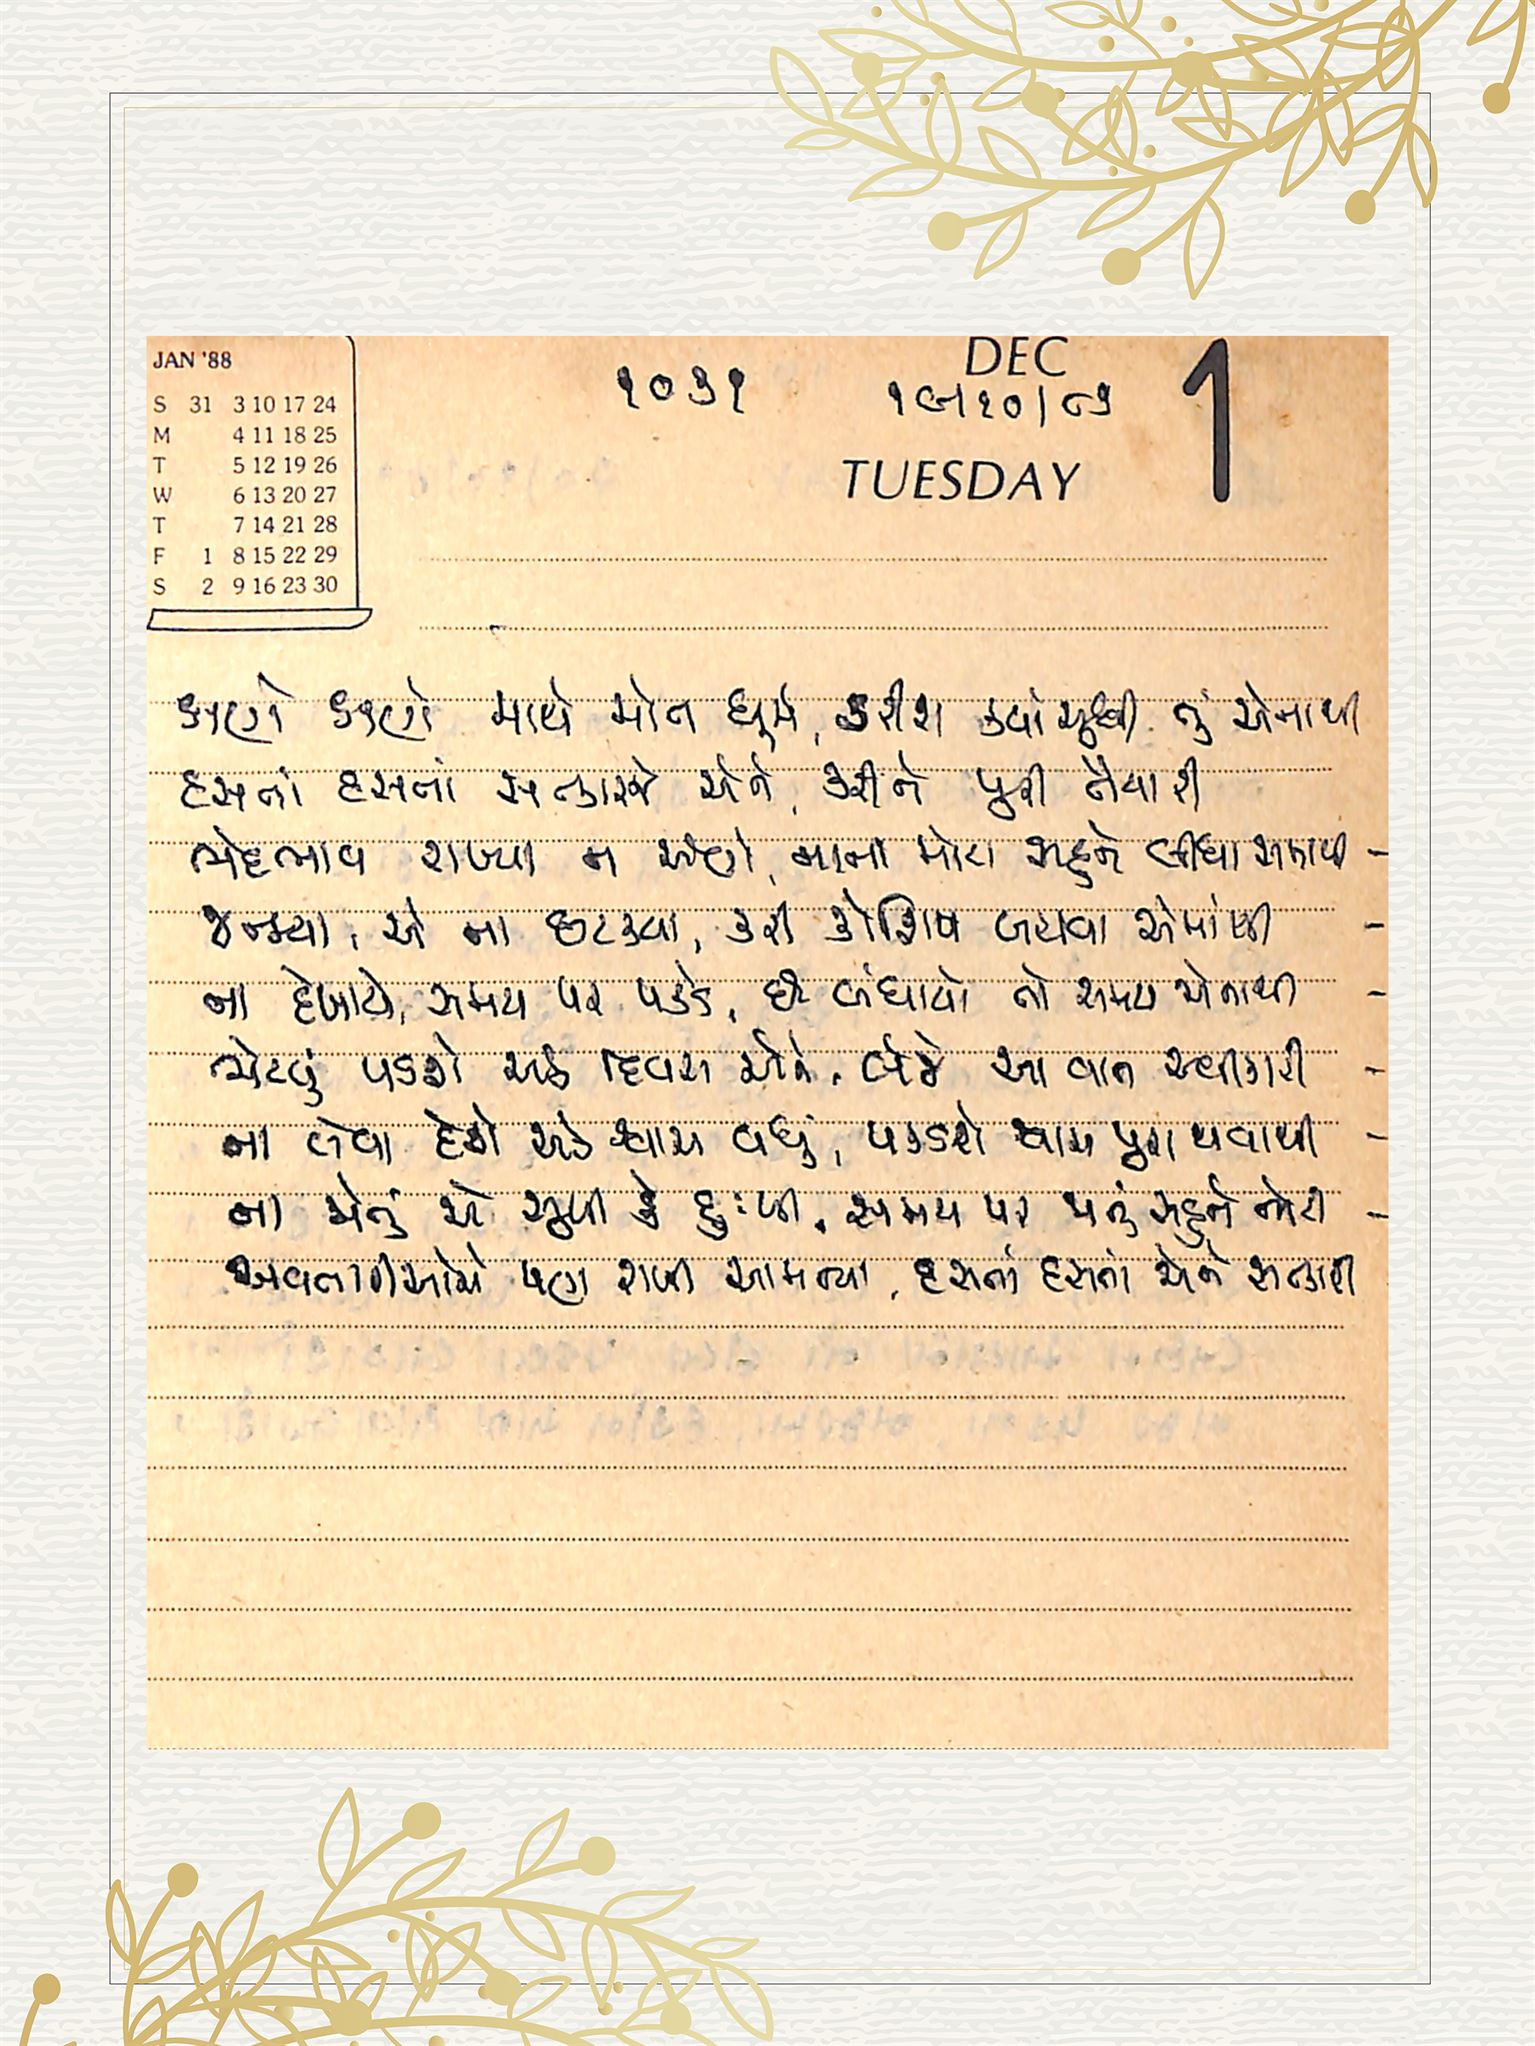 JAN '88
S 31 3 10 17 24
M 4 11 18 25
T 5 12 19 26
W 6 13 20 27
T 7 14 21 28
F 1 8 15 22 29
S 2 9 16 23 30
૧૦૩૧
DEC
૧૯|૧૦|૮૭
TUESDAY
1
ક્ષણે ક્ષણે માથે મોત ઘૂમે, કરીશ ક્યાં સુધી તું એનાથી
હસતાં હસતાં સત્કારજે એને, કરીને પુરી તૈયારી
ભેદભાવ રાખ્યા ન એણે, નાના મોટા સહુને લીધા સમાવી -
જન્મ્યા, એ ના છટકવા, કરી કોશિષ બચવા એમાંથી -
ના દેખાયે, સમય પર પકડે, છે બંધાયો તો સમય એનાથી -
ભેટવું પડશે એક દિવસ એને, લેજે આ વાત સ્વીકારી -
ના લેવા દેશે એક શ્વાસ વધુ, પકડશે શ્વાસ પુરા થવાથી -
ના એનું એ સુખી કે દુઃખી, સમય પર થતું સહુને ભેટી -
અવતારીઓએ પણ રાખી આમન્યા, હસતાં હસતાં એને સત્કારી